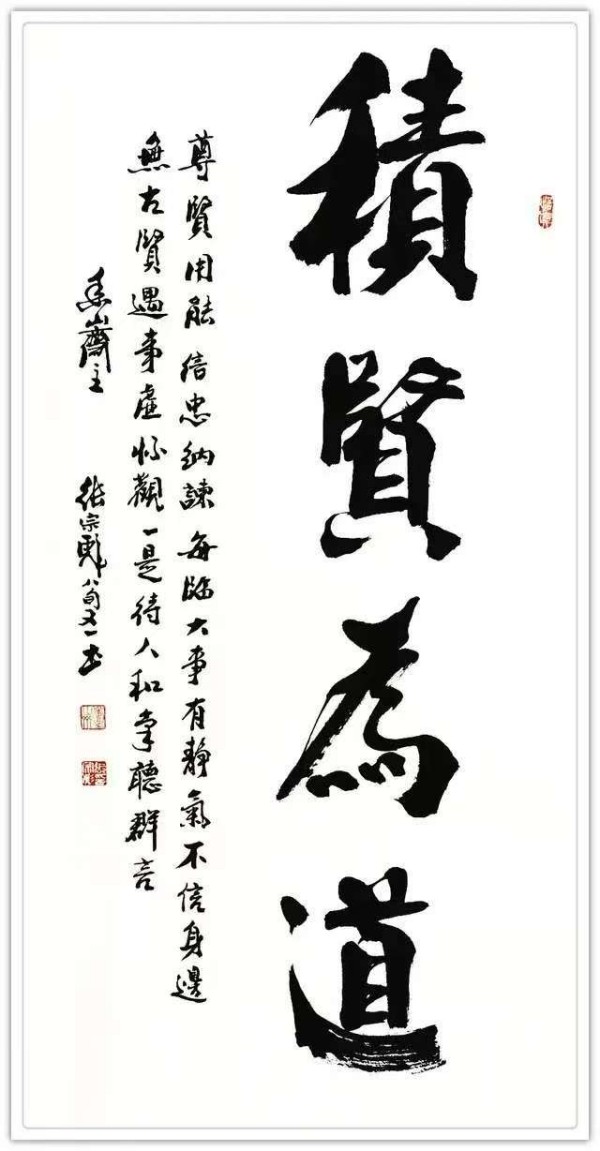 積賢為道
尊賢用能信忠納諫每臨大事有静氣不信身邊
無古賢遇事虛懷觀一是待人和聽群言
香山齋主 張宗彪八旬又一書